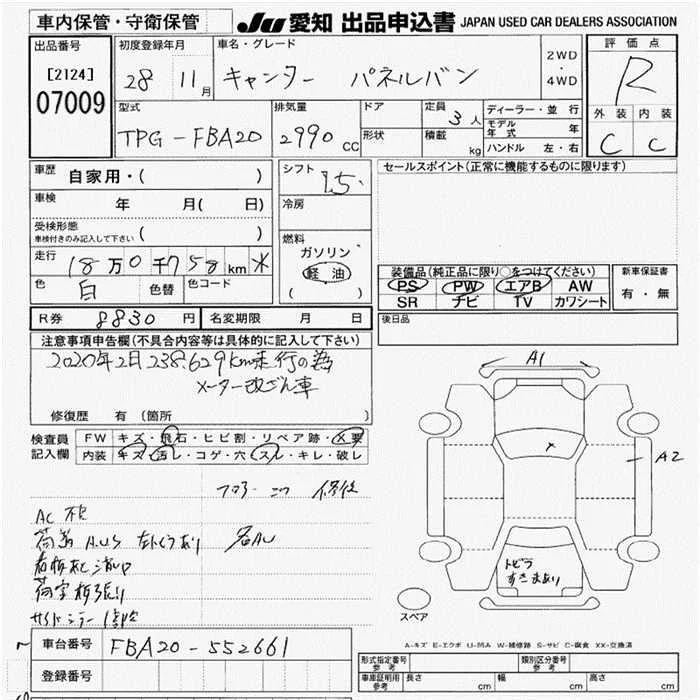 車内保管・守衛保管
JU 愛知 出品申込書 JAPAN USED CAR DEALERS ASSOCIATION
出品番号
[2124]
07009
初度登録年月
28 11月
車名・グレード
キャンター パネルバン
2WD
・
4WD
評価点
R
外装 内装
C C
型式
TPG-FBA20
排気量
2990 cc
ドア
形状
定員 3人
積載 kg
ディーラー・並行
モデル年式 年
ハンドル 左・右
車歴 自家用・( )
車検 年 月( 日)
受検形態
車検付きのみ記入して下さい ( )
走行 18万0千758km
色 白 色替 色コード
シフト
冷房
燃料
ガソリン
軽油
( )
セールスポイント(正常に機能するものに限ります)
装備品(純正品に限り○をつけてください)
PS PW エアB AW
SR ナビ TV カワシート
新車保証書
有・無
R券 8830円 名変期限 月 日
後日品
注意事項申告欄(不具合内容等は具体的に記入して下さい)
2020年2月238,629km走行の為
メーター改ざん車
修復歴 有(箇所 )
検査員記入欄
FW キズ・飛石・ヒビ割・リペア跡・X要
内装 キズ・汚レ・コゲ・穴・スレ・キレ・破レ
AC 不良
サイドミラー
A1
A2
x
トビラ
すきまあり
スペア
A-キズ E-エクボ U-凹み W-補修跡 S-サビ C-腐食 XX-交換済
車台番号 FBA20-552661
登録番号
形式指定番号 参考
類別区分番号 参考
車庫証明用 参考 長さ cm 幅 cm 高さ cm